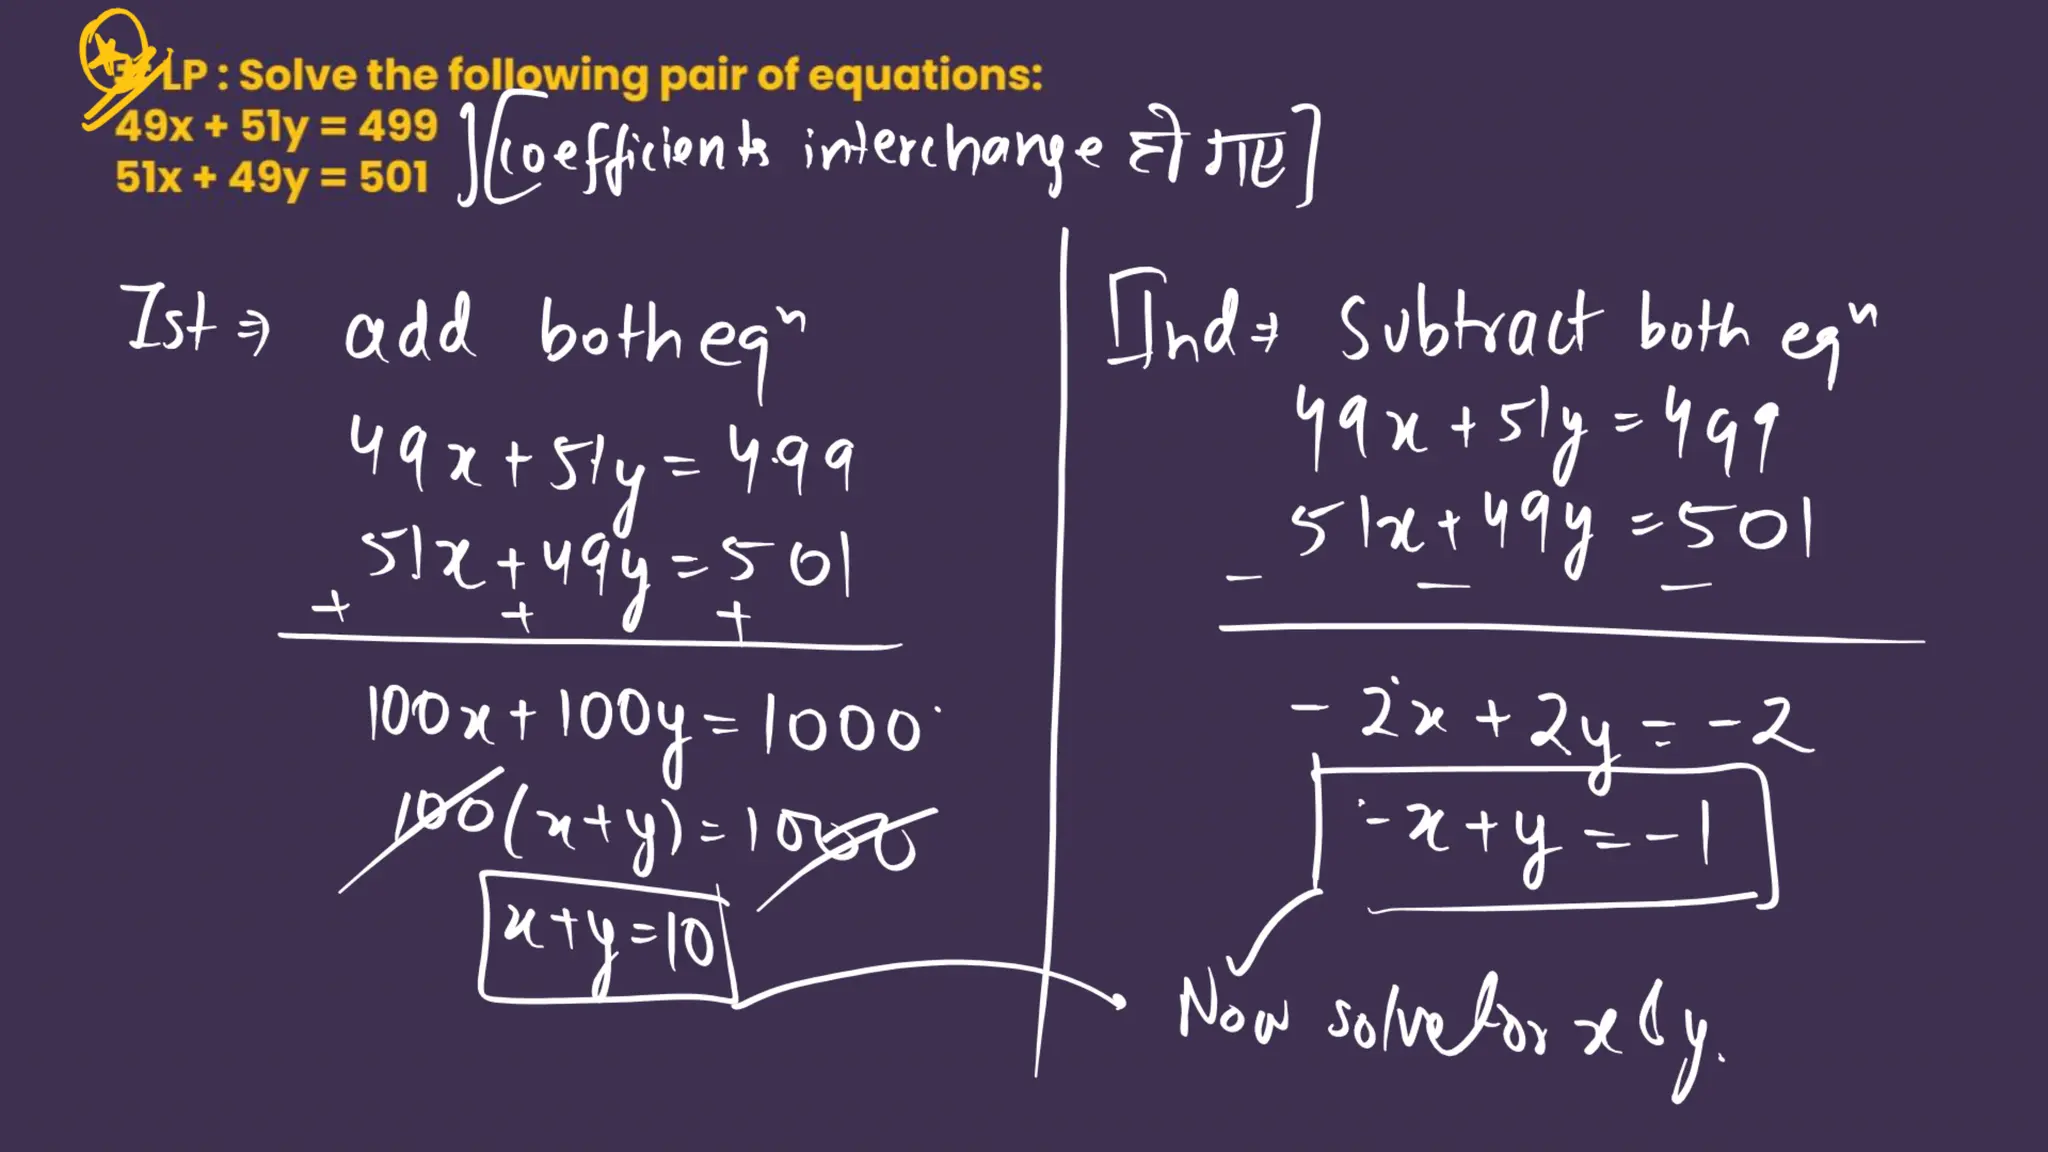 LP : Solve the following pair of equations:
49x + 51y = 499
51x + 49y = 501
][Coefficients interchange हो गए]
Ist ⇒ add both eqⁿ
49x + 51y = 499
51x + 49y = 501
+ + +
100x + 100y = 1000
100(x+y) = 1000
x+y=10
IInd ⇒ Subtract both eqⁿ
49x + 51y = 499
51x + 49y = 501
- - -
- 2x + 2y = -2
-x + y = -1
Now solve for x & y.